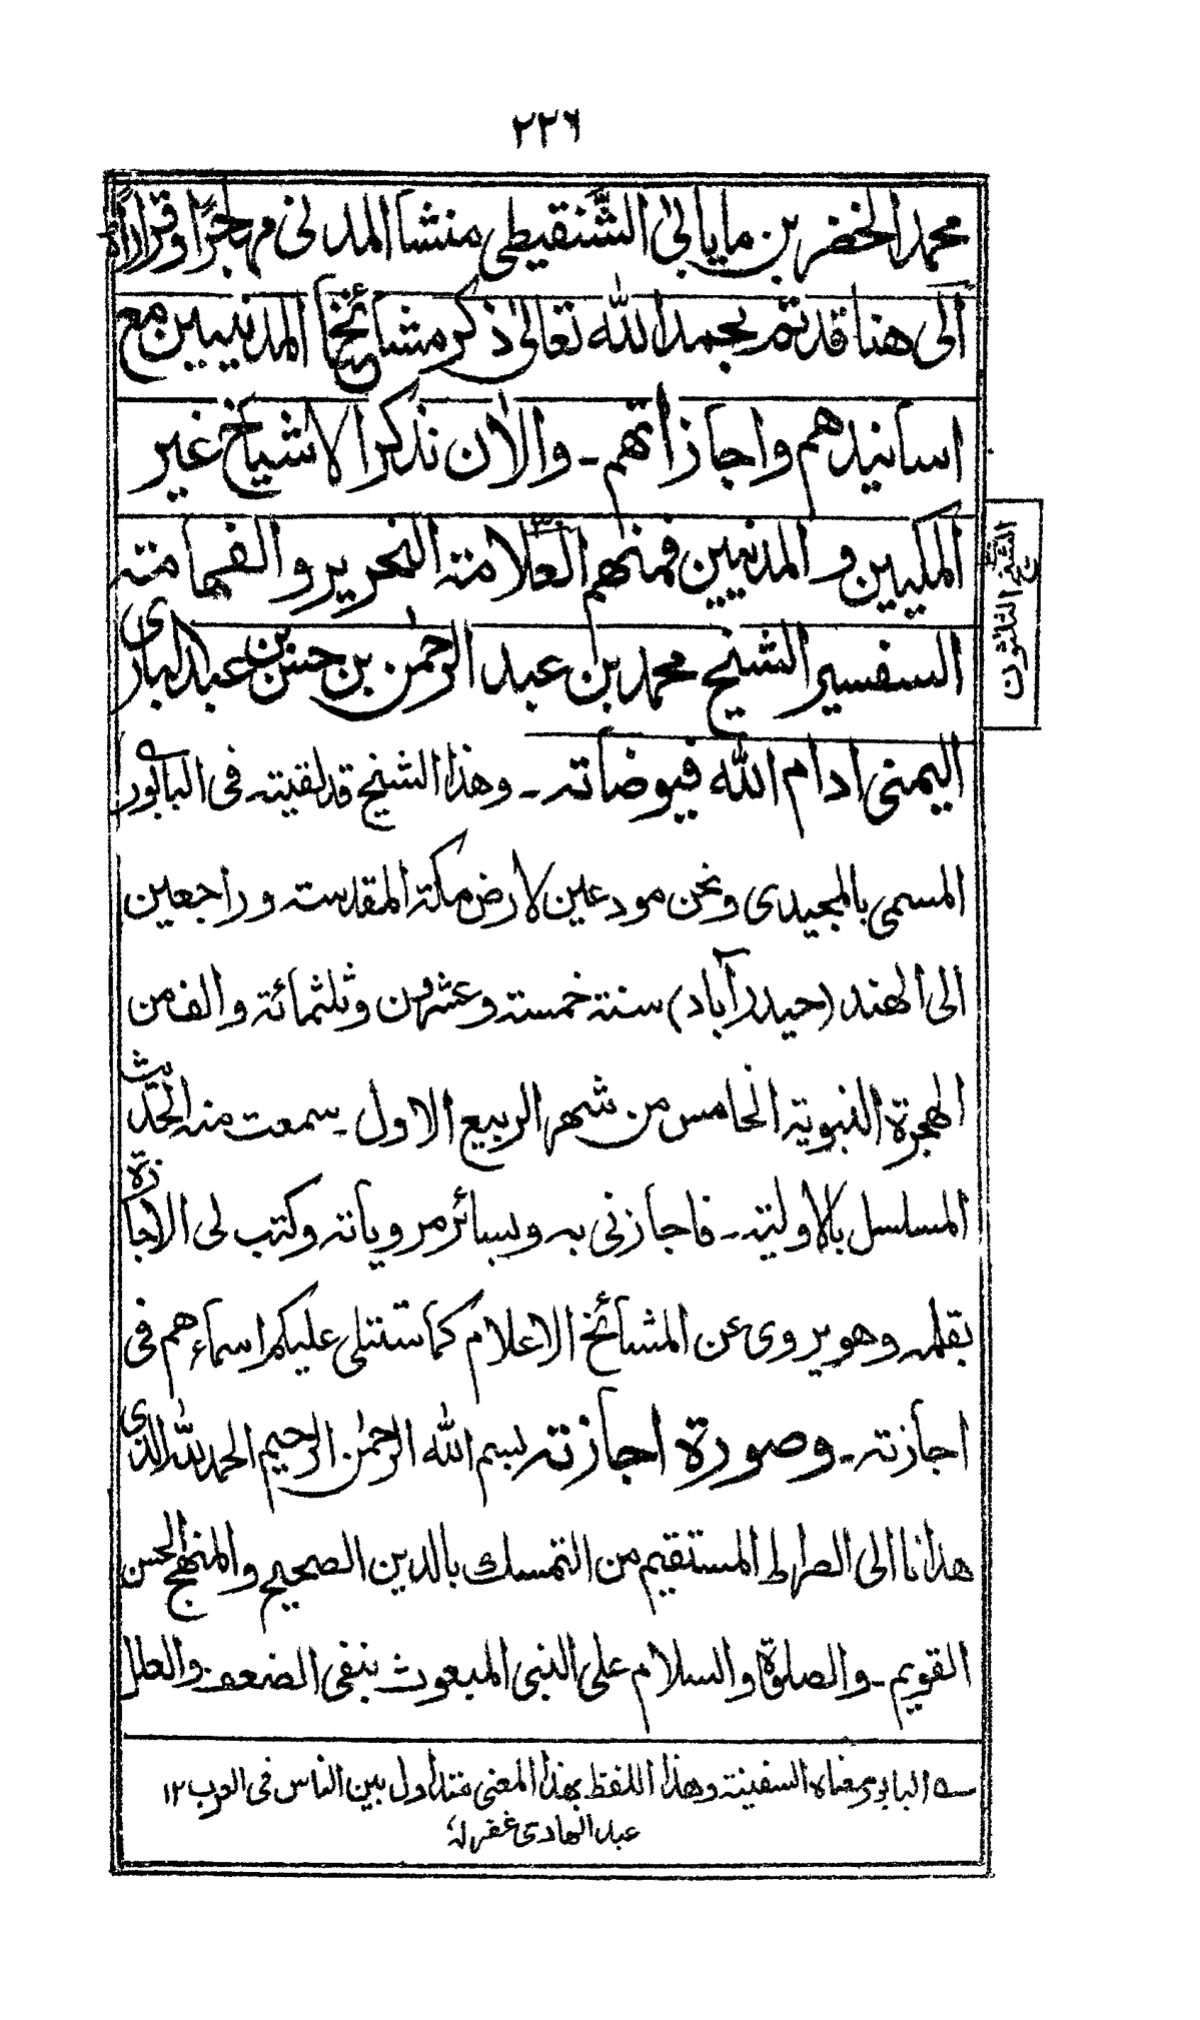 ٢٢٦
محمد الخضر بن مايابىٰ الشنقيطى منشأ المدنى مهاجرًا وقرارًا
الى هنا قد تم بحمد الله تعالىٰ ذكر مشائخنا المدنيين مع
اسانيدهم واجازاتهم ـ والاٰن نذكر الاشياخ غير
المكيين والمدنيين فمنهم العلامته النحرير والفهامته
السفسير الشيخ محمد بن عبد الرحمٰن بن حسن بن عبد البارى
اليمنى ادام الله فيوضاته ـ وهذا الشيخ قد لقيته فى البابور
المسمى بالمجيدى ونحن مودعين لارض مكته المقدسته وراجعين
الى الهند (حيدرآباد) سنته خمسته وعشرين وثلثمائة والف من
الهجرة النبويته الخامس من شهر الربيع الاول ـ سمعت منه الحديث
المسلسل بالاوليته ـ فاجازنى به وبسائر مروياته وكتب لى الاجازة
بقلمه وهو يروى عن المشائخ الاعلام كما ستتلى عليكم اسماءهم فى
اجازته ـ وصورة اجازته بسم الله الرحمٰن الرحيم الحمد لله الذى
هدانا الى الصراط المستقيم من التمسك بالدين الصحيح والمنهج الحسن
القويم ـ والصلوٰة والسلام على النبى المبعوث بنفى الضعف والعلل
البابور معناه السفينته وهذا اللفظ بهذا المعنى متداول بين الناس فى العرب ١٢
عبد الهادى غفر له
الشيخ الثلثون